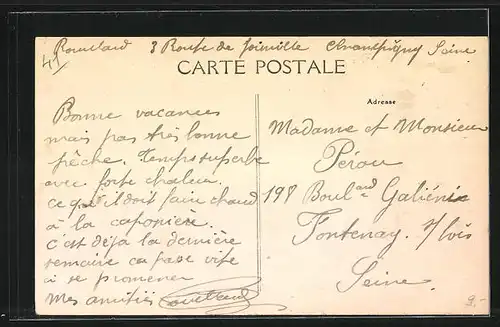 Bouillard 3 Route de Joinville Champigny Seine
CARTE POSTALE
Adresse
Bonne vacances
mais pas très bonne
pêche. Temps superbe
avec forte chaleur
ce qu'il doit faire chaud
à la caponière.
c'est déjà la dernière
semaine ça passe vite
à se promener
Mes amitiés
Madame et Monsieur
Pérou
198 Boulard Galiéni
Fontenay. s/bois
Seine.